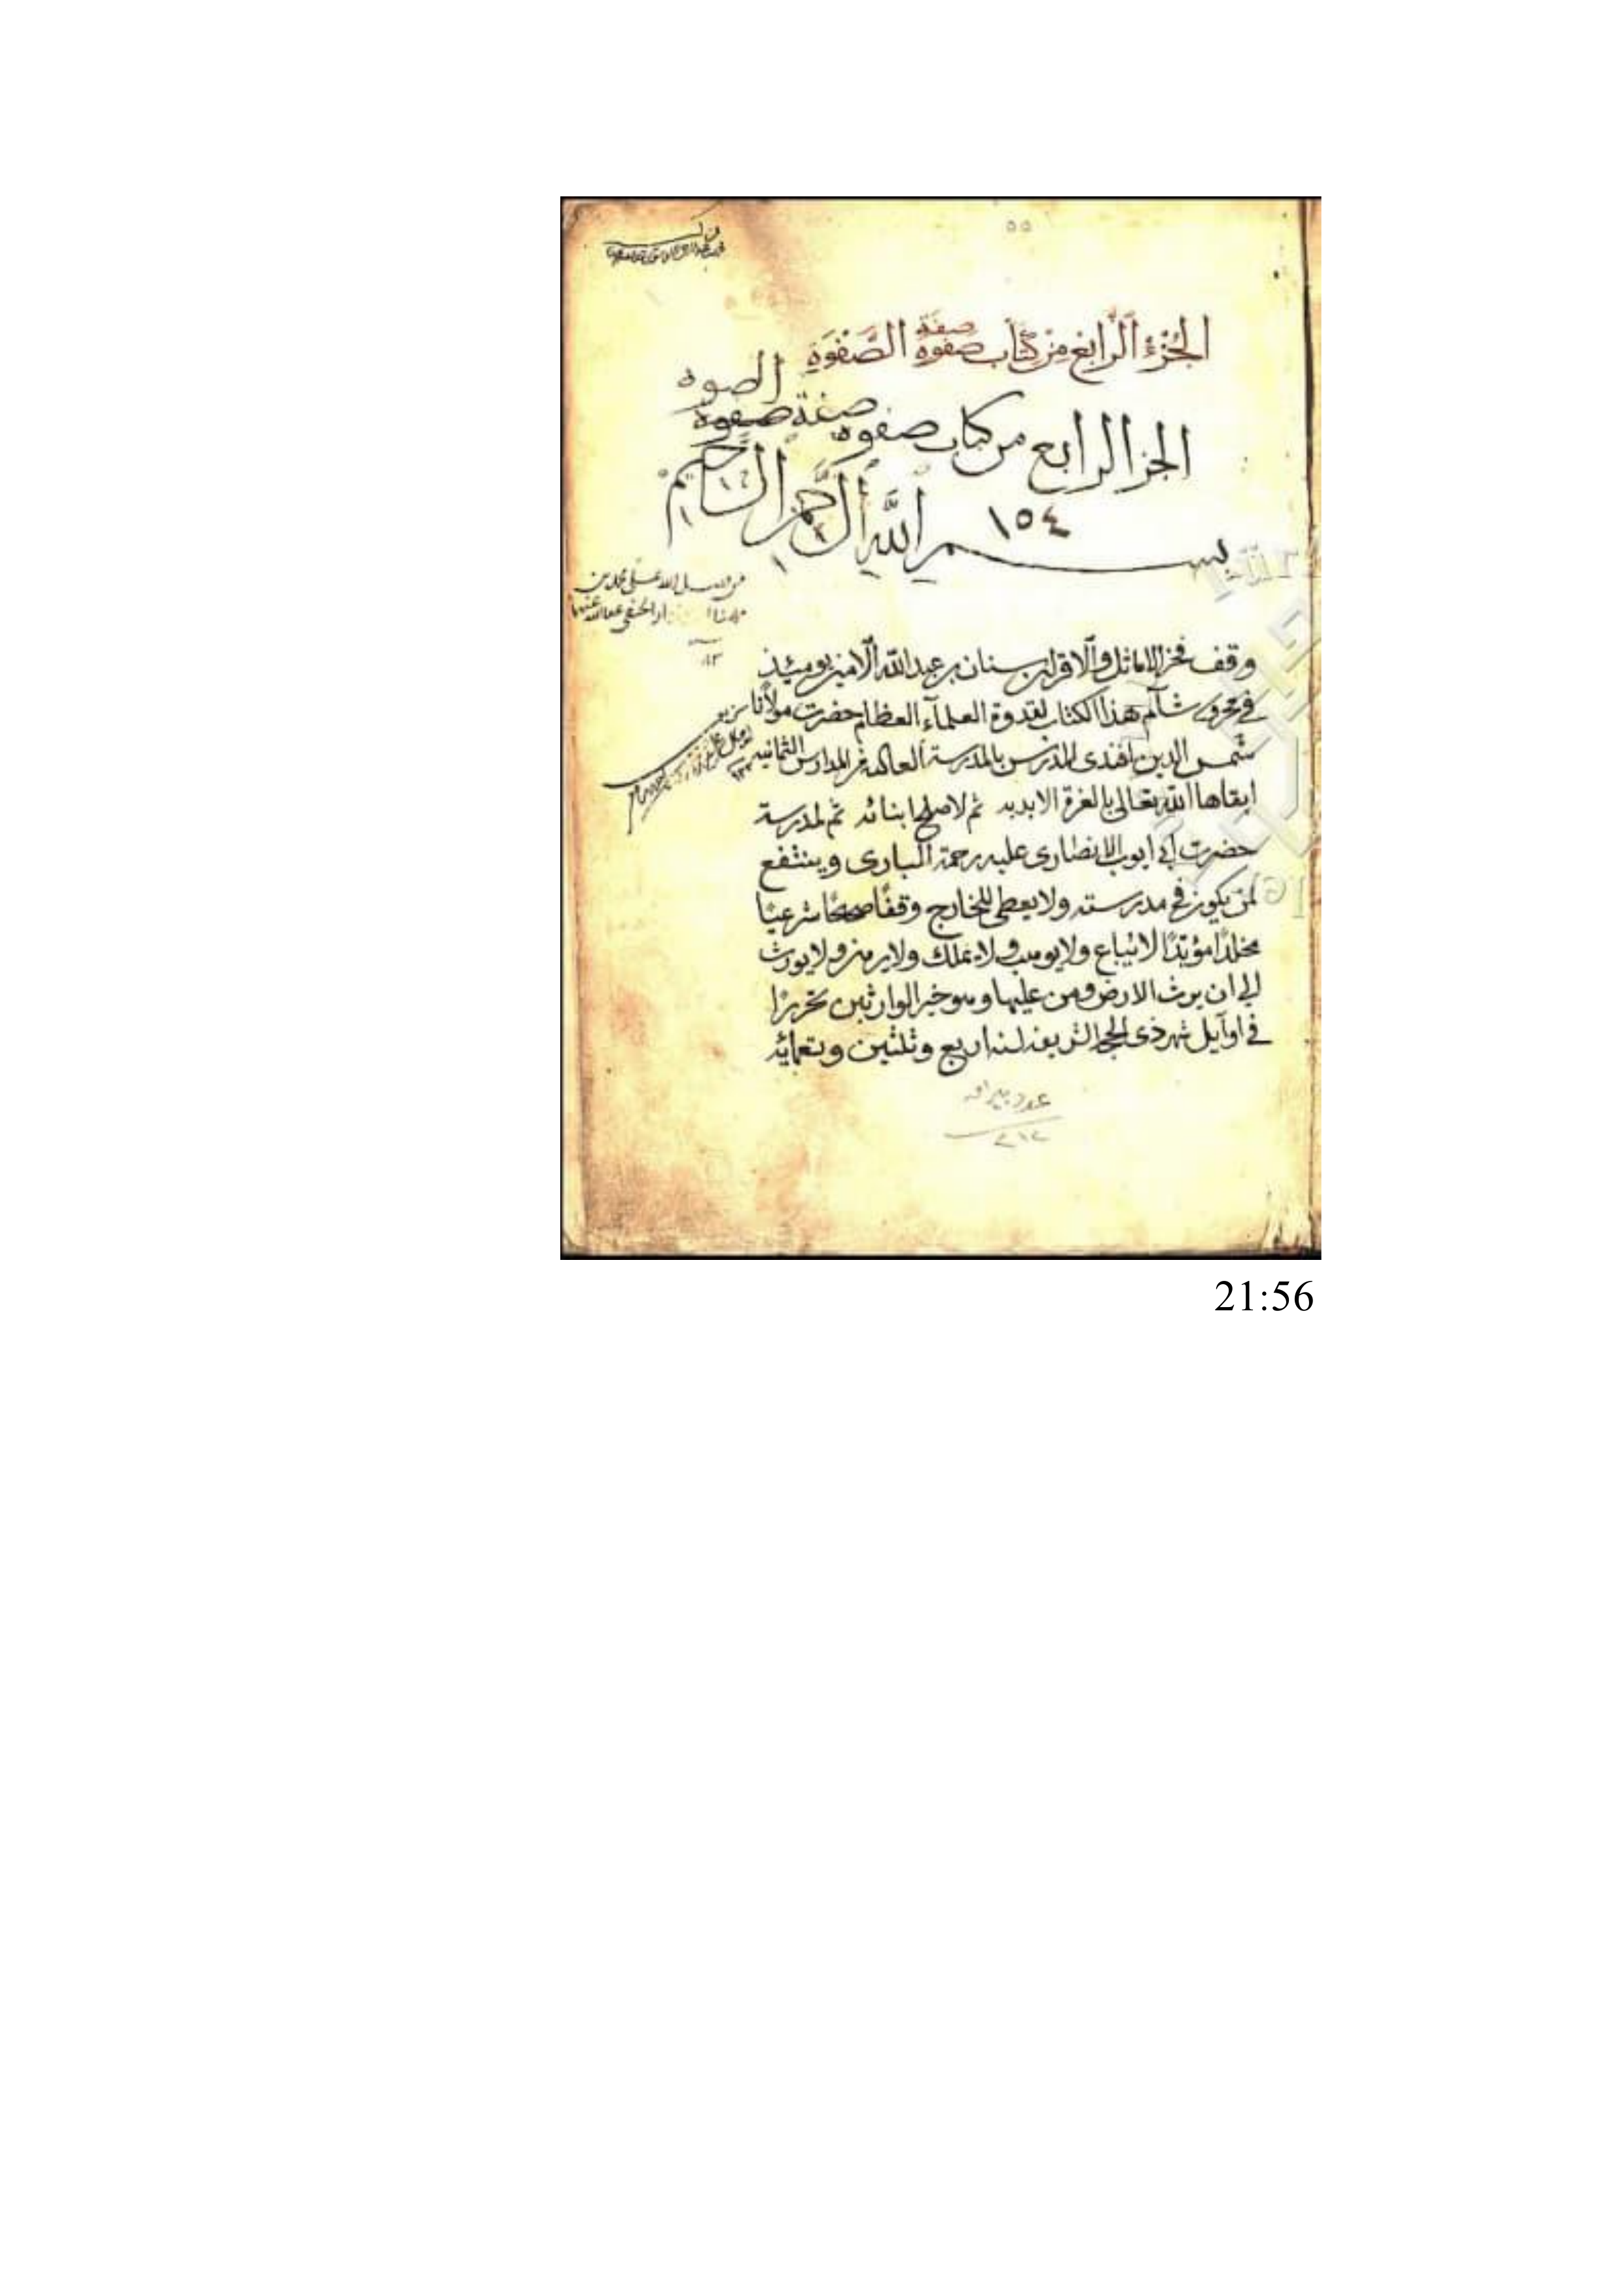 ٥٥
الجُزءُ الرَّابِعُ مِنْ كِتَابِ صفوة الصَّفْوَةِ
صفة
الصوه
الجزا الرابع من كتاب صفوه صفة صفوة
١٥٤
بسم الله الرحمن الرحيم
من فضل الله على محمد بن
الحنفي عفا الله عنهما
وقف فخر الاماثل والاقران سنان بن عبد الله الامين يومئذ
في محروس شام هذا الكتاب لقدوة العلماء العظام حضرت مولانا
شمس الدين افندى المدرس بالمدرسة العالية من المدارس الثمانية
ابقاها الله تعالى بالعزة الابدية ثم لاصلح ابنائه ثم لمدرسة
حضرت ابي ايوب الانصارى عليه رحمة البارى وينتفع
لمن يكون في مدرسته ولا يعطى للخارج وقفًا صحيحًا شرعيًا
مخلدًا مؤبدًا لا يباع ولا يوهب ولا يملك ولا يرهن ولا يورث
الى ان يرث الارض ومن عليها وهو خير الوارثين تحريرًا
في اوايل شهر ذى الحجة الشريفة لسنة اربع وثلثين وتسعمائة
عدد اوراقه
٢١٢
21:56